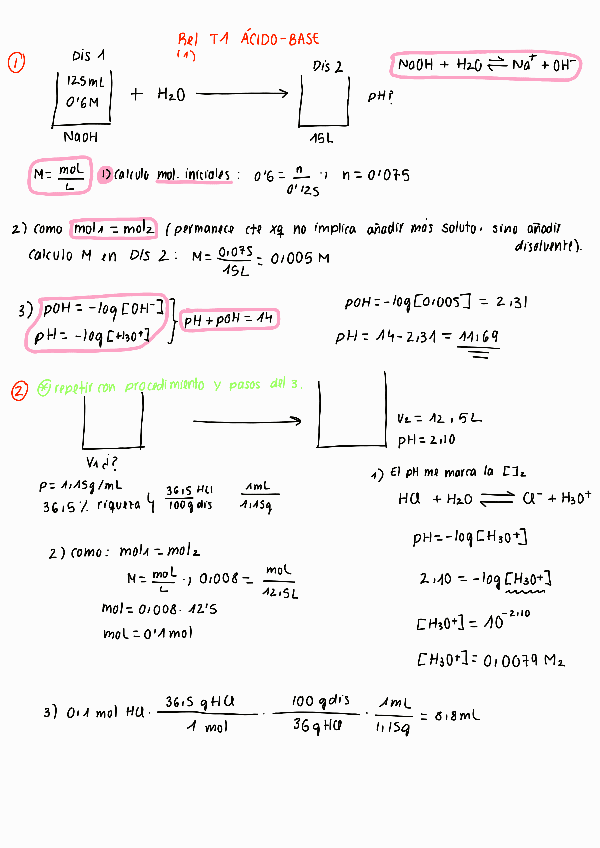 Rel T1 ÁCIDO-BASE
(1)
①
Dis 1
125mL
0'6M
NaOH
+ H2O ⟶
Dis 2
15L
pH?
NaOH + H2O ⇌ Na⁺ + OH⁻
M = mol/L 1) calculo mol. iniciales: 0'6 = n/0'125 ; n = 0'075
2) como mol1 = mol2 (permanece cte xq no implica añadir más soluto, sino añadir
disolvente).
calculo M en DIS 2: M = 0,075/15L = 0,005 M
3) pOH = -log[OH⁻]
pH = -log[H3O+]
pH + pOH = 14
pOH = -log[0,005] = 2,31
pH = 14 - 2,31 = 11,69
② * repetir con procedimiento y pasos del 3.
V1 ¿?
V2 = 12,5L
pH = 2,10
ρ = 1,15g/mL
36,5% riqueza 36,5 HCl/100g dis 1mL/1,15g
1) El pH me marca la []2
HCl + H2O ⇌ Cl⁻ + H3O⁺
pH = -log[H3O+]
2,10 = -log[H3O+]
[H3O+] = 10^-2,10
[H3O+] = 0,0079 M2
2) como: mol1 = mol2
M = mol/L ; 0,008 = mol/12,5L
mol = 0,008 · 12'5
mol = 0'1 mol
3) 0,1 mol HCl · 36,5 gHCl/1 mol · 100 gdis/36gHCl · 1mL/1,15g = 8,8mL